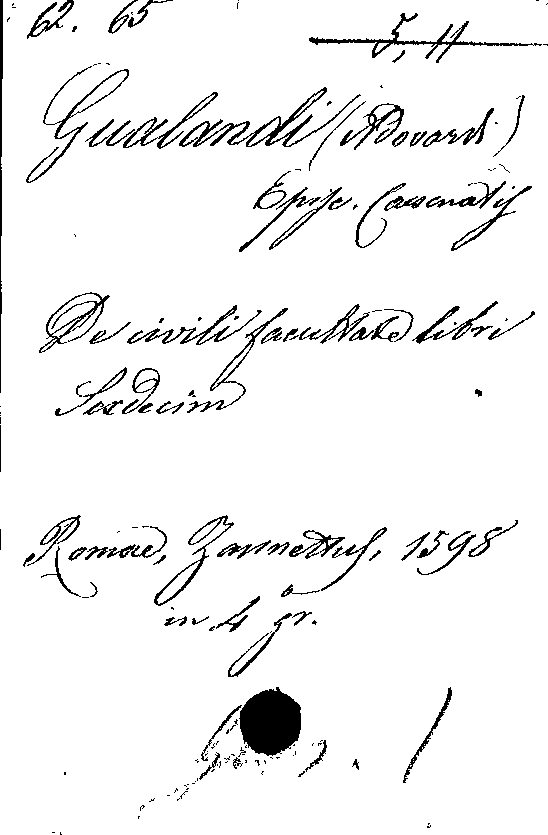 62. 65
5, 11
Gualandi (Adovardi)
Episc. Caesenatis
De civili facultate libri
Sexdecim
Romae, Zannettus, 1598
in 4° gr.